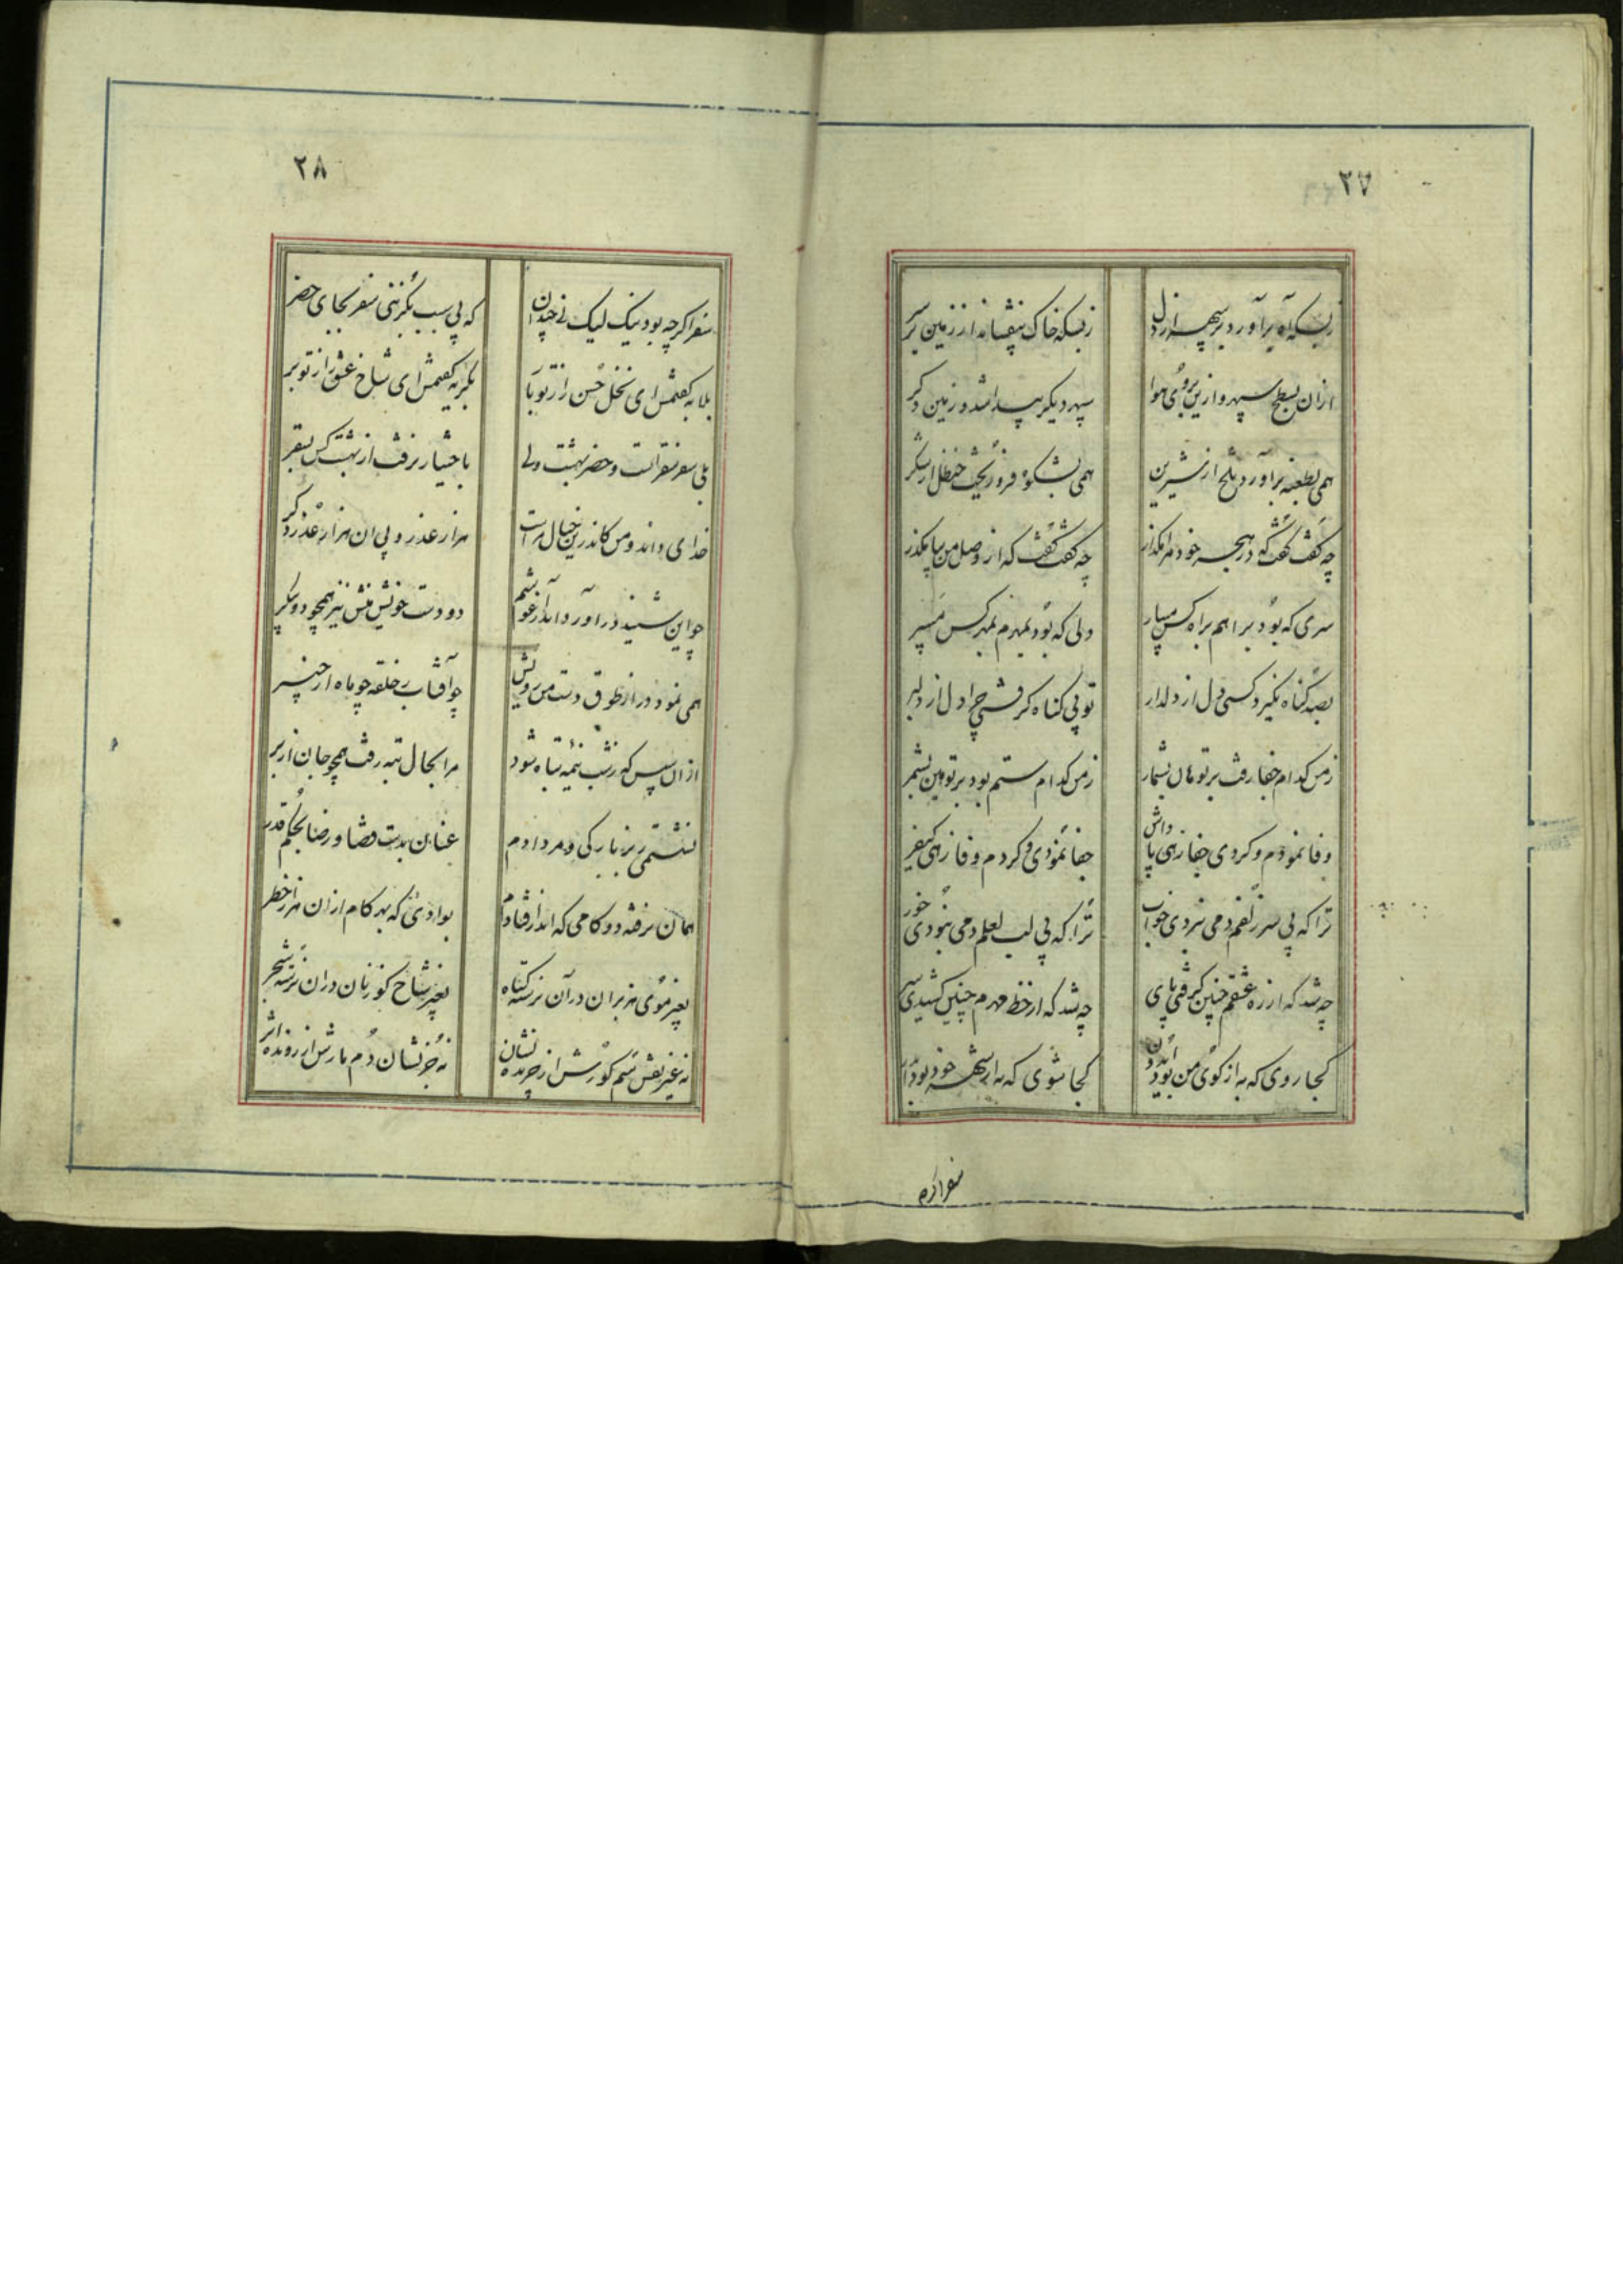 ۲۷
زبسکه آه برآورد بر سپهر از دل
زبسکه خاک بیفشاند از زمین بر سر
ازان بسیط سپهر و ازین بروی هوا
سپهر دیگر پیدا شد و زمین دگر
همی بطعنه برآورد تلخ از شیرین
همی بشکوه فرو ریخت حنظل از شکر
چه گفت گفت که در هجر خود مرا مگذار
چه گفت گفت که از وصل من بیا مگذر
سری که بود براهم براه کس مسپار
دلی که بود بمهرم بمهر کس مسپر
بصد گناه نگیرد کسی دل از دلدار
تو بی گناه گرفتی چرا دل از دلبر
زمن کدام جفا رفت بر تو هان بشمار
زمن کدام ستم بود بر تو هین بشمر
وفا نمودم و کردی جفا زهی پاداش
جفا نمودی و کردم وفا زهی کیفر
ترا که بی سر زلفم دمی نبردی خواب
ترا که بی لب لعلم دمی نبودی خور
چه شد که از ره عشقم چنین گرفتی پای
چه شد که از خط مهرم چنین کشیدی سر
کجا روی که به از کوی من بود
کجا شوی که به از شهر خود بود
سفر اگرچه
۲۸
سفر اگرچه بود نیک لیک نی چندان
که بی سبب بگزینی سفر بجای حضر
بلابه گفتمش ای نخل حسن را ز تو بار
بگریه گفتمش ای شاخ عشق را ز تو بر
بلی سفر سقر است و حضر بهشت ولی
باختیار نرفت از بهشت کس بسقر
خدای داند و من کاندرین خیال مراست
هزار عذر و پی آن هزار عذر دگر
چو این شنید درآورد اندر آغوشم
دو دست خویش منش نیز همچو دو پیکر
همی نمود در از طوق دست من رویش
چو آفتاب ز حلقه چو ماه از چنبر
ازان سپس که زشب نیمه تباه شود
مرا بحال تبه رفت همچو جان از بر
نشستمی زبر بارگی و مردادم
عنان بدست قضا و رضا بحکم قدر
همان نرفته دو گامی که اندر افتادم
بوادئی که بهر گام ازان هزار خطر
بغیر موی هزبران در آن نرسته گیاه
بغیر شاخ گوزنان دران نرسته شجر
نه غیر نقش سم گورش از چرنده نشان
نه جز نشان دم مارش از رونده اثر